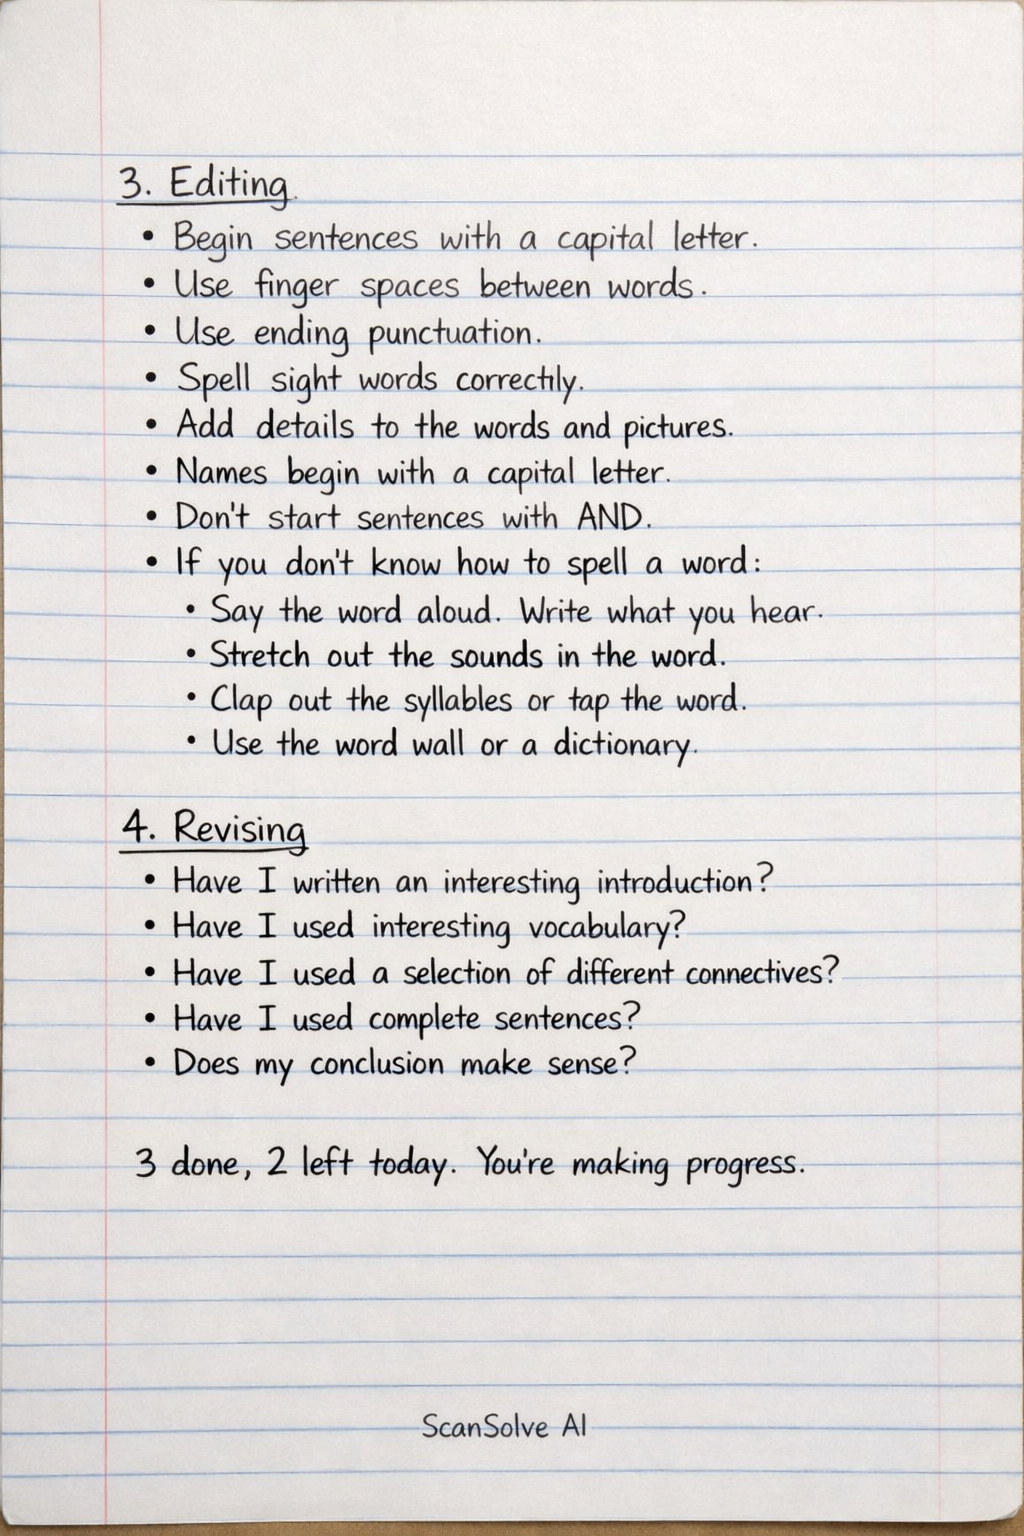 3. Editing
• Begin sentences with a capital letter.
• Use finger spaces between words.
• Use ending punctuation.
• Spell sight words correctly.
• Add details to the words and pictures.
• Names begin with a capital letter.
• Don't start sentences with AND.
• If you don't know how to spell a word:
• Say the word aloud. Write what you hear.
• Stretch out the sounds in the word.
• Clap out the syllables or tap the word.
• Use the word wall or a dictionary.
4. Revising
• Have I written an interesting introduction?
• Have I used interesting vocabulary?
• Have I used a selection of different connectives?
• Have I used complete sentences?
• Does my conclusion make sense?
3 done, 2 left today. You're making progress.
ScanSolve AI